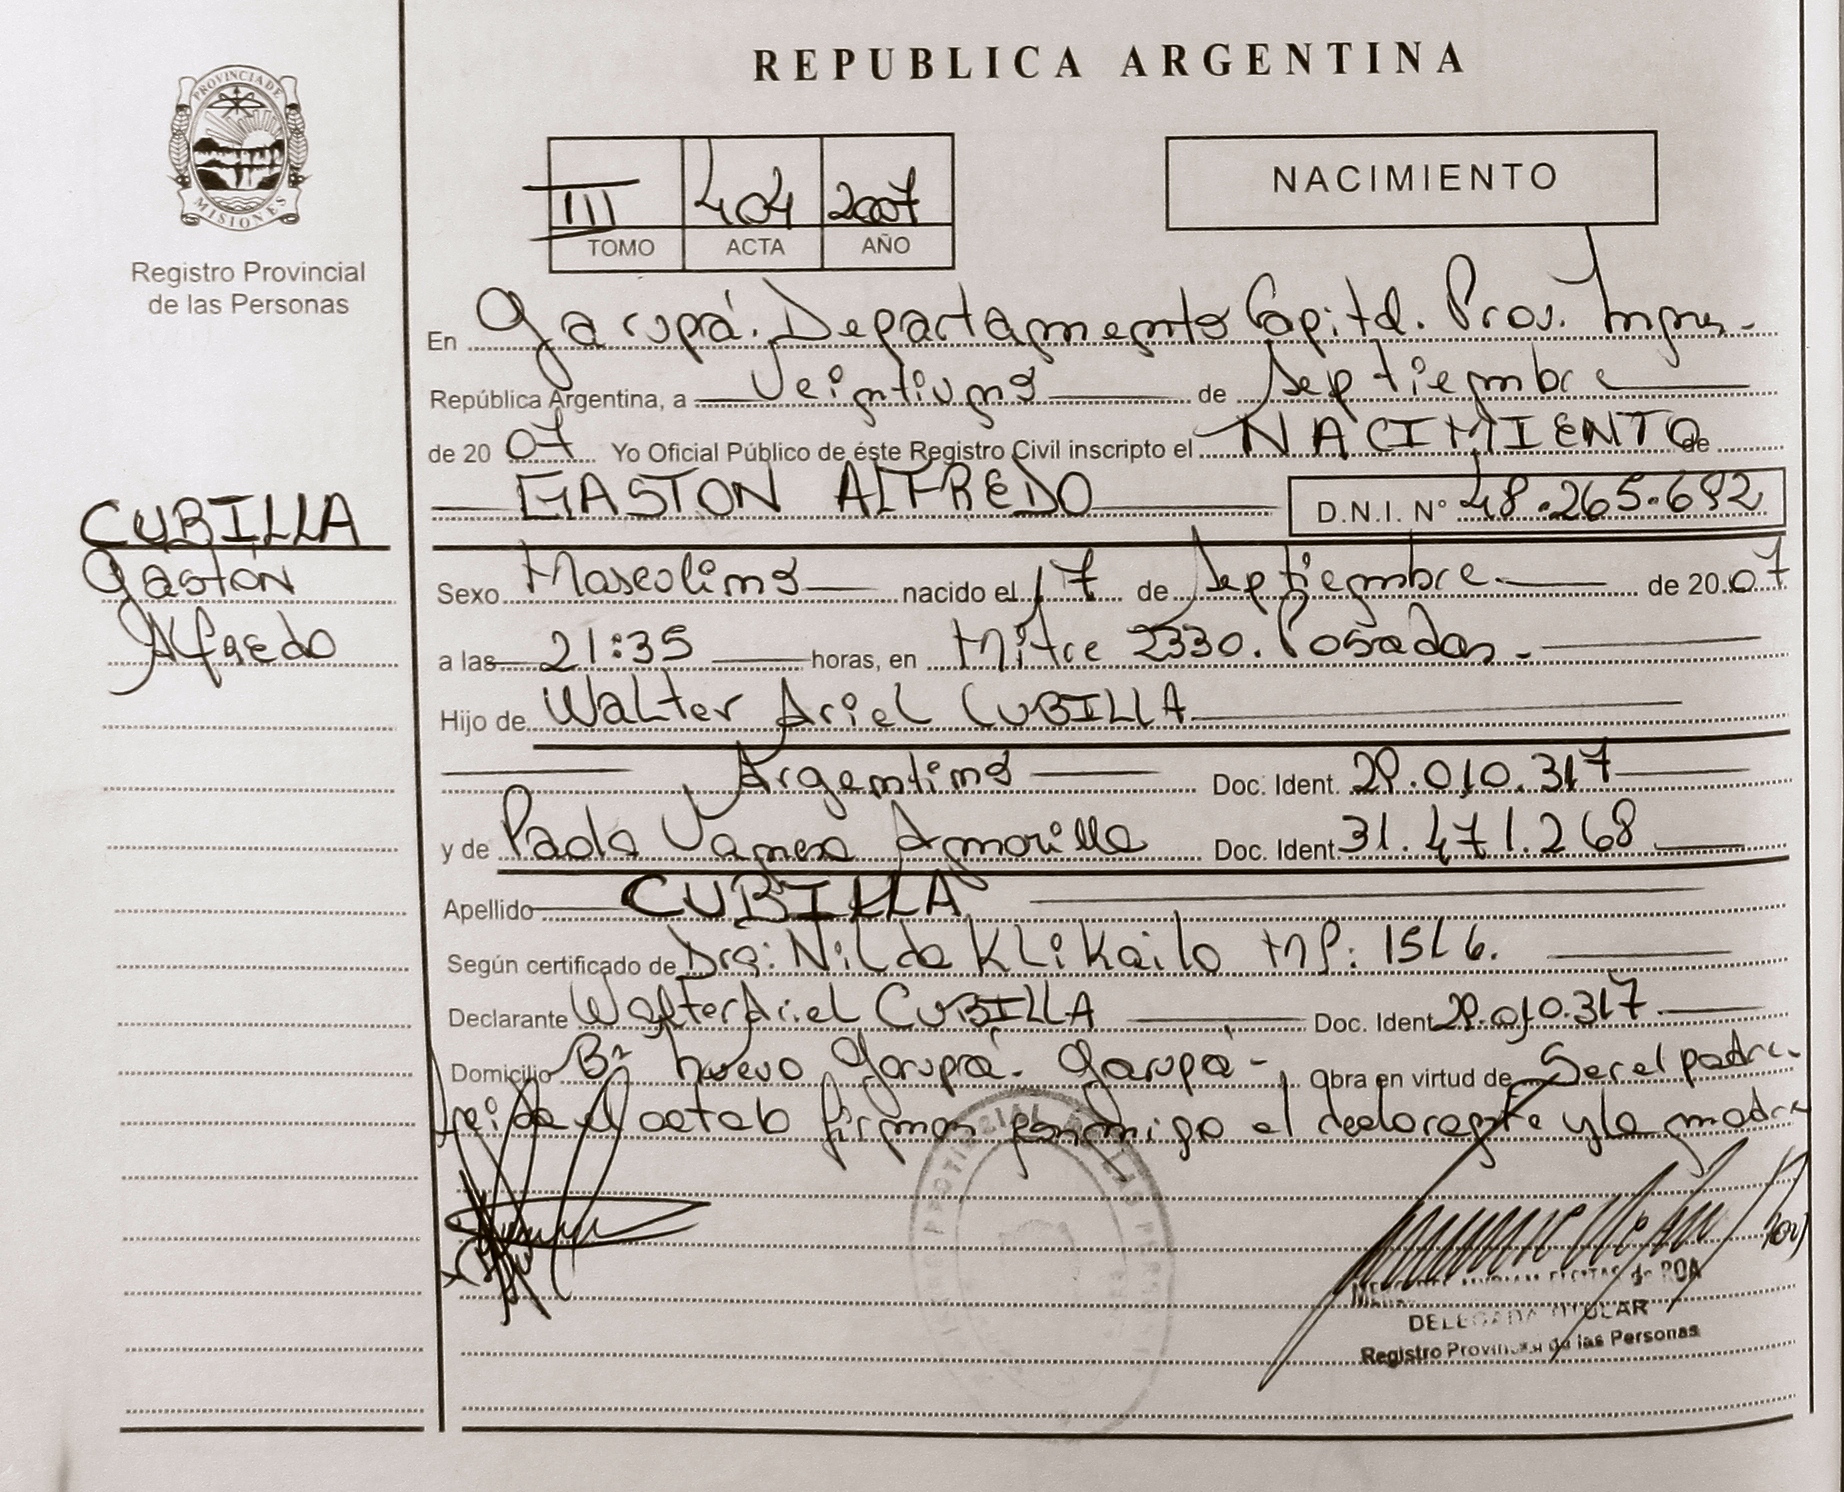 REPUBLICA ARGENTINA
PROVINCIA DE MISIONES
Registro Provincial
de las Personas
III 404 2007
TOMO ACTA AÑO
NACIMIENTO
En Garupá. Departamento Capital. Prov. Mnes.-
República Argentina, a Veintiuno de Septiembre
de 2007 Yo Oficial Público de éste Registro Civil inscripto el NACIMIENTO de
GASTON ALFREDO D.N.I. N° 48.265.692
CUBILLA
Gastón
Alfredo
Sexo Masculino nacido el 17 de Septiembre de 2007
a las 21:35 horas, en Mitre 2330. Posadas.-
Hijo de Walter Ariel CUBILLA
Argentino Doc. Ident. 29.010.317
y de Paola Vanesa Amarilla Doc. Ident. 31.471.268
Apellido CUBILLA
Según certificado de Dra: Nilda Klikailo MP: 1516.
Declarante Walter Ariel CUBILLA Doc. Ident 29.010.317
Domicilio Bº nuevo Garupá. Garupá- Obra en virtud de Ser el padre.
Leida el acta firman conmigo el declarante y la madre
MYRIAM de ROA
DELEGADA TITULAR
Registro Provincial de las Personas